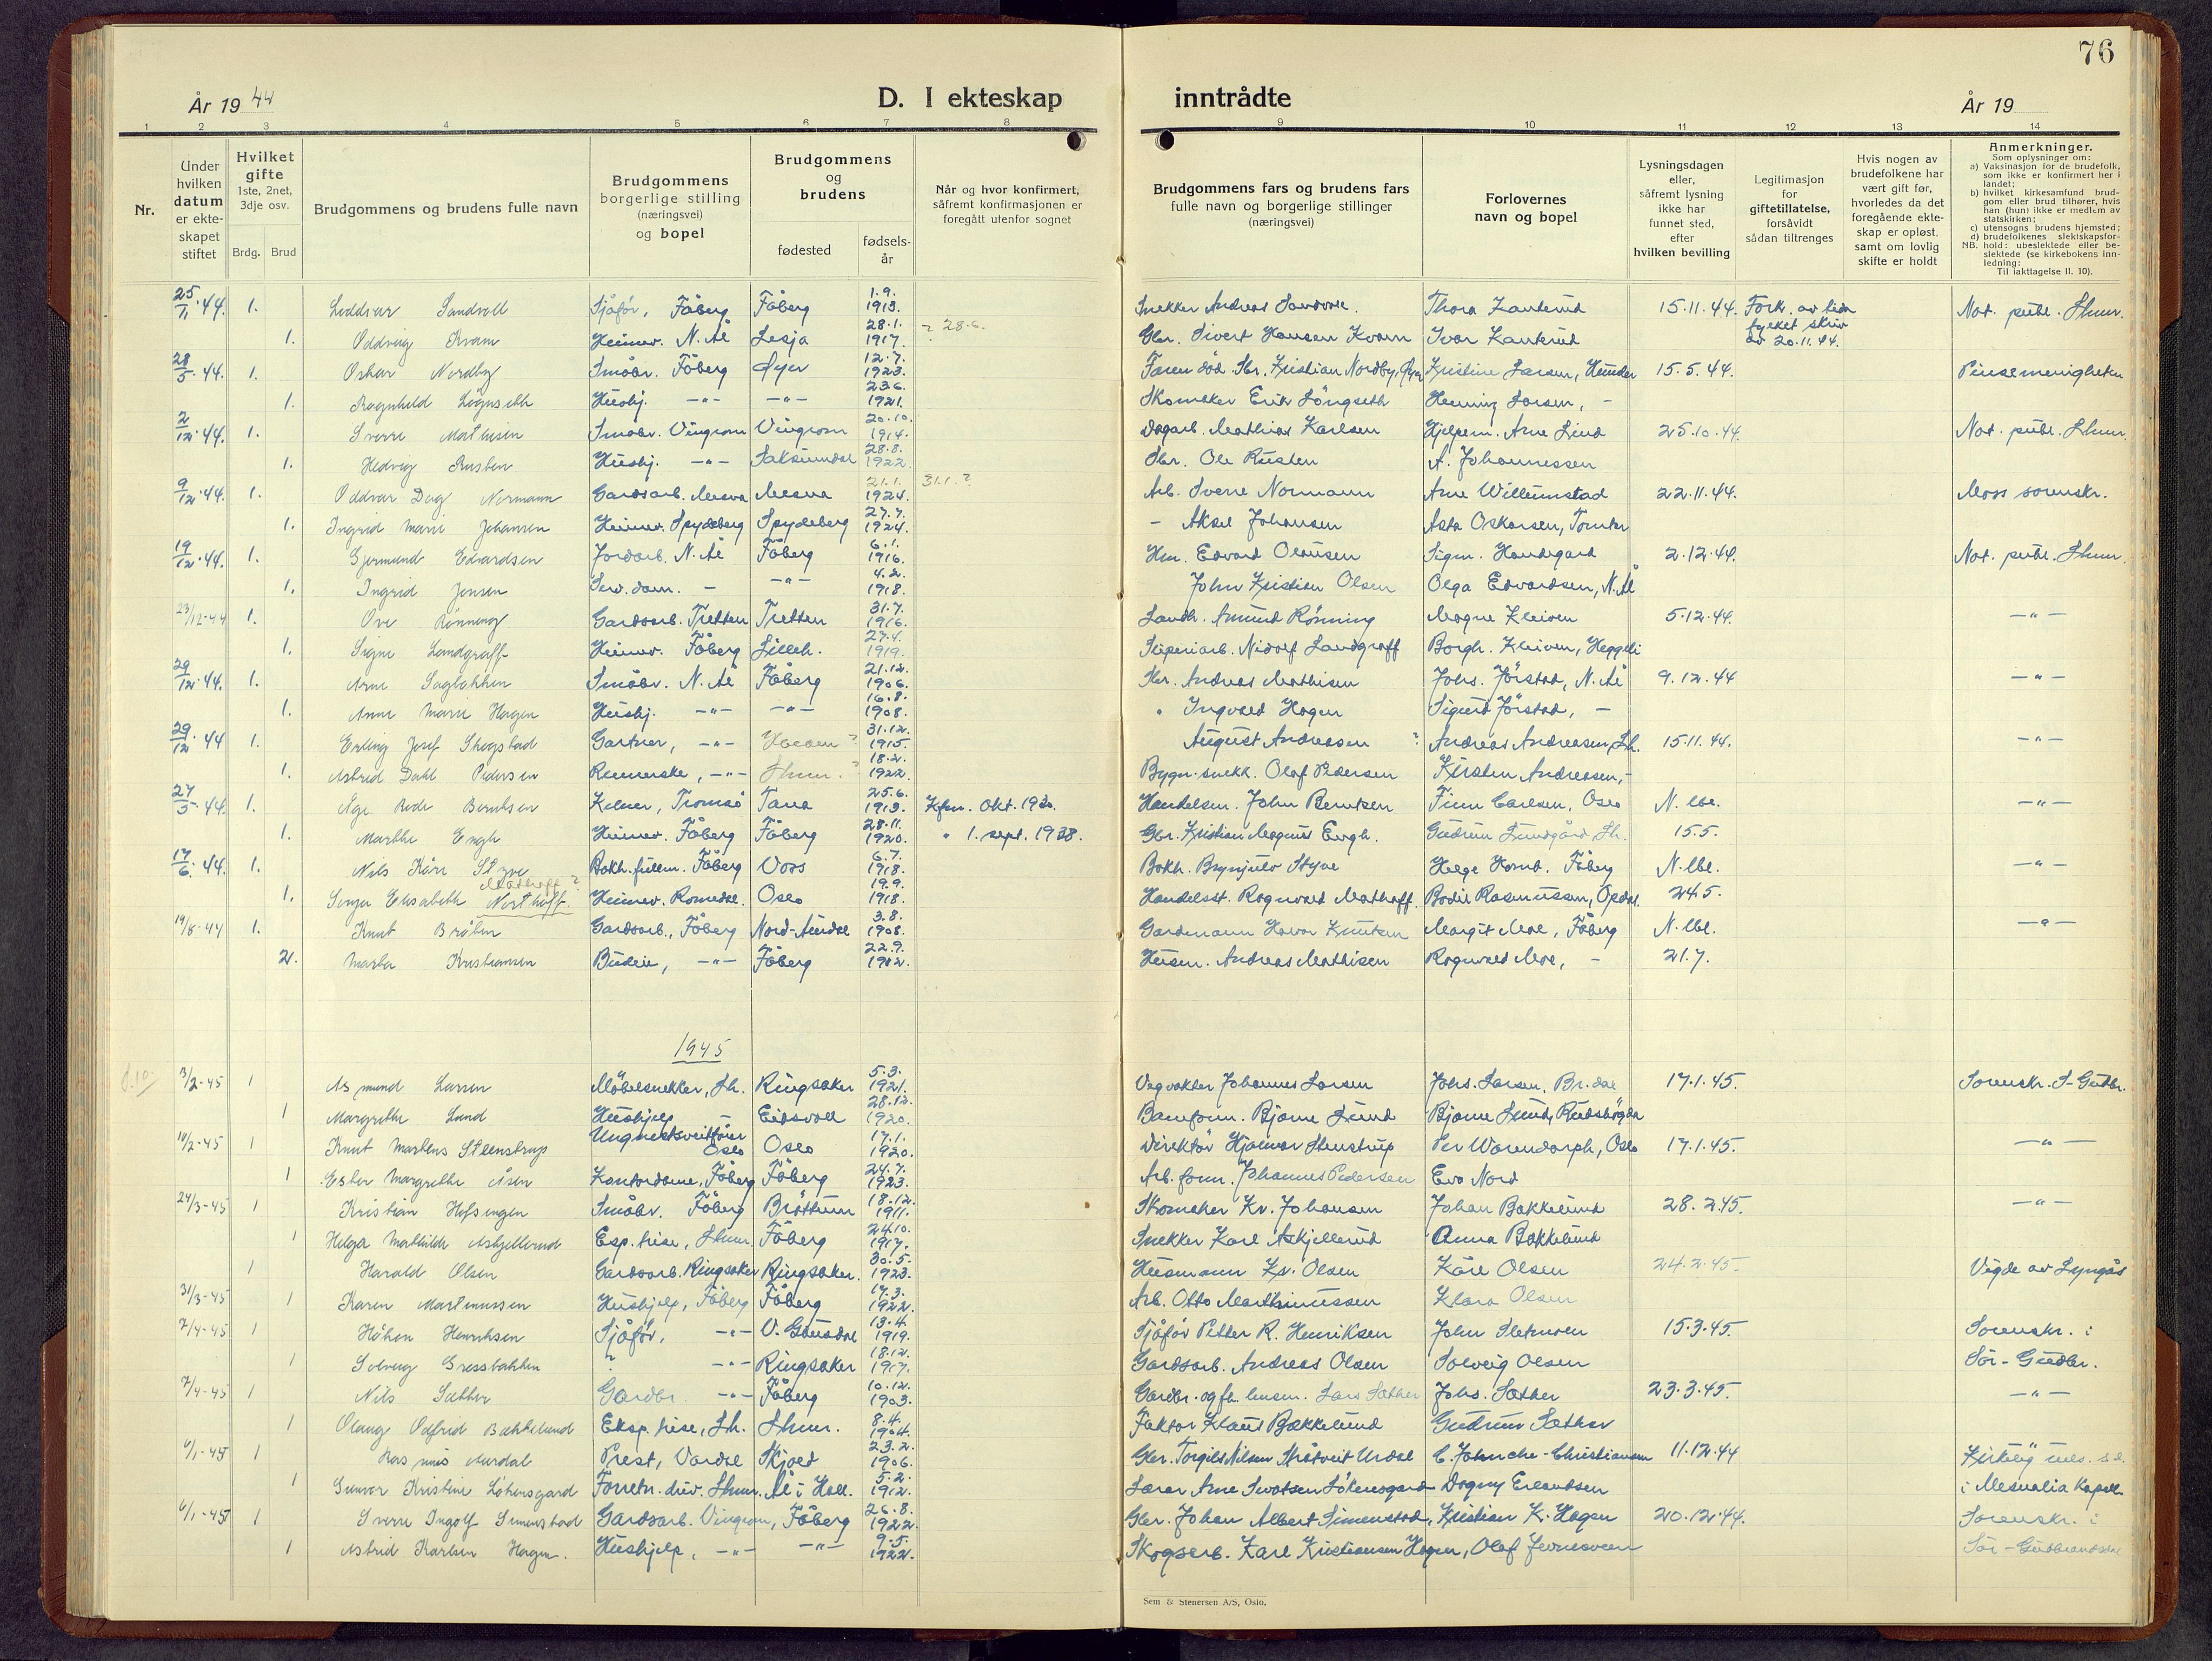 76
År 19 44
D. I ekteskap
inntrådte
År 19
1 2 3 4 5 6 7 8 9 10 11 12 13 14
Nr.
Under hvilken datum er ekteskapet stiftet
Hvilket gifte 1ste, 2net, 3dje osv.
Brdg. Brud
Brudgommens og brudens fulle navn
Brudgommens borgerlige stilling (næringsvei) og bopel
Brudgommens og brudens
fødested
fødsels-år
Når og hvor konfirmert, såfremt konfirmasjonen er foregått utenfor sognet
Brudgommens fars og brudens fars fulle navn og borgerlige stillinger (næringsvei)
Forlovernes navn og bopel
Lysningsdagen eller, såfremt lysning ikke har funnet sted, efter hvilken bevilling
Legitimasjon for giftetillatelse, forsåvidt sådan tiltrenges
Hvis nogen av brudefolkene har vært gift før, hvorledes da det foregående ekteskap er opløst, samt om lovlig skifte er holdt
Anmerkninger.
Som oplysninger om:
a) Vaksinasjon for de brudefolk, som ikke er konfirmert her i landet;
b) hvilket kirkesamfund brudgom eller brud tilhører, hvis han (hun) ikke er medlem av statskirken;
c) utensogns brudens hjemsted;
d) brudefolkenes slektskapsforhold: ubeslektede eller beslektede (se kirkebokens innledning:
NB. Til iakttagelse II. 10).
25/1. 44. 1. Loddvar Sandvoll Sjåfør, Fåberg Fåberg 1.9. 1913. Snekker Andreas Sandvold. Thora Kanterud 15.11.44. Not. publ. Lhmr.
1. Oddveig Kvam Heimev. N. Ål Lesja 28.1. 1917. ? 28.6. Gbr. Sivert Hansen Kvam Ivar Kanterud av 20.11.44.
28/5. 44. 1. Oskar Nordby Småbr. Fåberg Øyer 12.7. 1923. Faren død. Gbr. Kristian Nordby, Øyer Kristine Larsen, Hunder 15.5.44. Pinsemenigheten
1. Ragnhild Løgnseth Hushj. -"- -"- 23.6. 1921. Skomaker Erik Löngseth Henning Larsen, -
2/12. 44. 1. Sverre Mathisen Småbr. Vingrom Vingrom 20.10. 1914. Dagarb. Mathias Karlsen Hjelpem. Arne Lund 25.10.44. Not. publ. Lhmr.
1. Hedvig Rusten Hushj. -"- Saksumdal 28.8. 1922. Gbr. Ole Rusten A. Johannessen
9/12. 44. 1. Oddvar Dag Normann Gardsarb. Mesna Mesna 21.1. 1924. 31.1.? Arb. Sverre Normann Arne Willumstad 22.11.44. Moss sorenskr.
1. Ingrid Marie Johansen Heimev. Spydeberg Spydeberg 27.7. 1924. - Aksel Johansen Asta Oskarsen, Tomter
19/12. 44. 1. Gjermund Edvardsen Jordarb. N. Ål Fåberg 6.1. 1916. Hm. Edvard Olausen Sigm. Haudegard 2.12.44. Not. publ. Lhmr.
1. Ingrid Jensen Serv. dam. - -"- 4.2. 1918. John Kristian Olsen Olga Edvardsen, N. Ål
23/12-44 1. Ove Rønning Gardsarb. Tretten Tretten 31.7. 1916. Landh. Amund Rønning Magne Kleiven 5.12.44. -"-
1. Signe Landgraff Heimev. Fåberg Lilleh. 27.4. 1919. Sliperiarb. Nidolf Landgraff Borgh. Kleiven, Heggeli
29/12. 44. 1. Arne Sagbakken Småbr. N. Ål Fåberg 21.12. 1906. Gbr. Andreas Mathisen Johs. Jörstad, N. Ål 9.12.44 -"-
1. Anne Marie Hagen Hushj. -"- -"- 16.8. 1908. " Ingvald Hagen Sigurd Jörstad, -
29/12. 44 1. Erling Josef Skogstad Gartner, -"- 31.12. 1915. August Andreasen ? Andreas Andreasen, Lh. 15.11.44. -"-
1. Astrid Dahl Pedersen -"- Lhmr. ? 18.2. 1922. Bygn. snekk. Olaf Pedersen Kirsten Andreasen, -
27/5. 44. 1. Åge Bode Berntsen Kelner, Tromsö Tana 25.6. 1913. Kfm. Okt. 1930. Handelsm. John Berntsen Finn Carlsen, Oslo N. lbl. -"-
1. Marthe Engh Heimev. Fåberg Fåberg 28.11. 1920. " 1. sept. 1938. Gbr. Kristian Magnus Engh. Gudrun Lundgård Lh. 15.5.
17/6. 44. 1. Nils Kåre Styve Bokh. fullm. Fåberg Voss 6.7. 1918. Bokh. Brynjulv Styve Helge Homb. Fåberg N. lbl. -"-
Mathoff ?
1. Sonja Elisabeth Northoff Heimev. Romedal. Oslo 19.9. 1918. Handelsst. Ragnvald Mathoff. Bodil Rasmussen, Opdal. 24.5.
19/8-44 1. Knut Bråten Gardsarb., Fåberg Nord-Aurdal 3.8. 1908. Gardmann Havor Knutsen Margit Moe, Fåberg N. lbl. -"-
2. Marta Kristiansen Budeie, -"- Fåberg 22.9. 1912. Husm. Andreas Mathisen Ragnvald Moe, - 21.7.
1945
3/2-45 1 Asmund Larsen Möbelsnekker, Lh. Ringsaker 5.3. 1921. Vegvokter Johannes Larsen Johs. Larsen, Br. dal 17.1.45. Sorenskr. S-Gudbr.
1 Margrethe Lund Hushjelp - Eidsvoll 28.12. 1920. Baneform. Bjarne Lund Bjarne Lund, Rudshögda
10/2-45 1 Knut Martens Steenstrup Oslo Oslo 17.1. 1920. Direktör Hjalmar Stenstrup Per Warendorph, Oslo 17.1.45. -"-
1 Ester Margrethe Åsen Kontordame, Fåberg Fåberg 24.7. 1923. Arb. form. Johannes Pedersen Eva Nord
24/3-45 1 Kristian Hofsengen Småbr. Fåberg Bröttum 18.12. 1911. Skomaker Kr. Johansen Johan Bakkelund 28.2.45. -"-
1 Helga Mathilde Askjellerud Exp. trise, Lhmr. Fåberg 24.10. 1917. Snekker Karl Askjellerud Anna Bakkelund
1 Harald Olsen Gardsarb. Ringsaker Ringsaker. 30.5. 1923. Husmann Kr. Olsen Kåre Olsen 24.2.45. Vigde av Lyngås
31/3-45 1 Karen Martinussen Hushjelp, Fåberg Fåberg 17.3. 1922. Arb. Otto Marthinussen Klara Olsen
7/4-45 1 Håkon Henriksen Sjåfør, -"- V. Gausdal 13.4. 1919. Sjåfør Petter R. Henriksen John Sletmoen 15.3.45. Sorenskr. i
1 Solveig Gressbakken ? -"- Ringsaker 18.12. 1917. Gardsarb. Andreas Olsen Solveig Olsen Sör-Gudbr.
7/4-45 1 Nils Sæther Gardbr. -"- Fåberg 10.12. 1903. Gardbr. og fh. husm. Lars Sæther Johs. Sæther 23.3.45. -"-
1 Olaug Odfrid Bakkelund Eksp. trise, Lh. Lhmr. 8.4. 1904. Faktor Klaus Bakkelund Gudrun Sæther
6/1-45 1 Rasmus Aurdal Prest, Vardal Skjold 23.2. 1906. Gbr. Torgils Nilsen Urdal C. Johnche-Christiansen 11.12.44
1 Gunvor Kristine Løkensgard Forretn. driv. Lhmr. Ål i Hall. 5.2. 1912. Lærer Arne Løkensgard Dagny Erlandsen i Mesnalia Kapell
6/1-45 1 Sverre Ingolf Simenstad Gardsarb. Vingrom, Fåberg 26.8. 1922. Gbr. Johan Albert Simenstad, Kristian K. Hagen 20.12.44. Sorenskr. i
1 Astrid Karlsen Hagen. Hushjelp, -"- -"- 9.5. 1922. Skogsarb. Karl Kristiansen Hagen, Olaf Jevnesveen Sör-Gudbrandsdal
Sem & Stenersen A/S, Oslo.